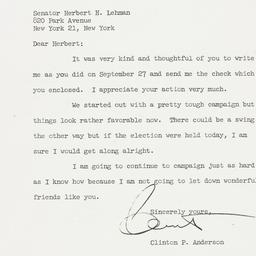 Senator Herbert H. Lehman
820 Park Avenue
New York 21, New York
Dear Herbert:
It was very kind and thoughtful of you to write
me as you did on September 27 and send me the check which
you enclosed. I appreciate your action very much.
We started out with a pretty tough campaign but
things look rather favorable now. There could be a swing
the other way but if the election were held today, I am
sure I would get along alright.
I am going to continue to campaign just as hard
as I know how because I am not going to let down wonderful
friends like you.
Sincerely yours,
Clinton P. Anderson